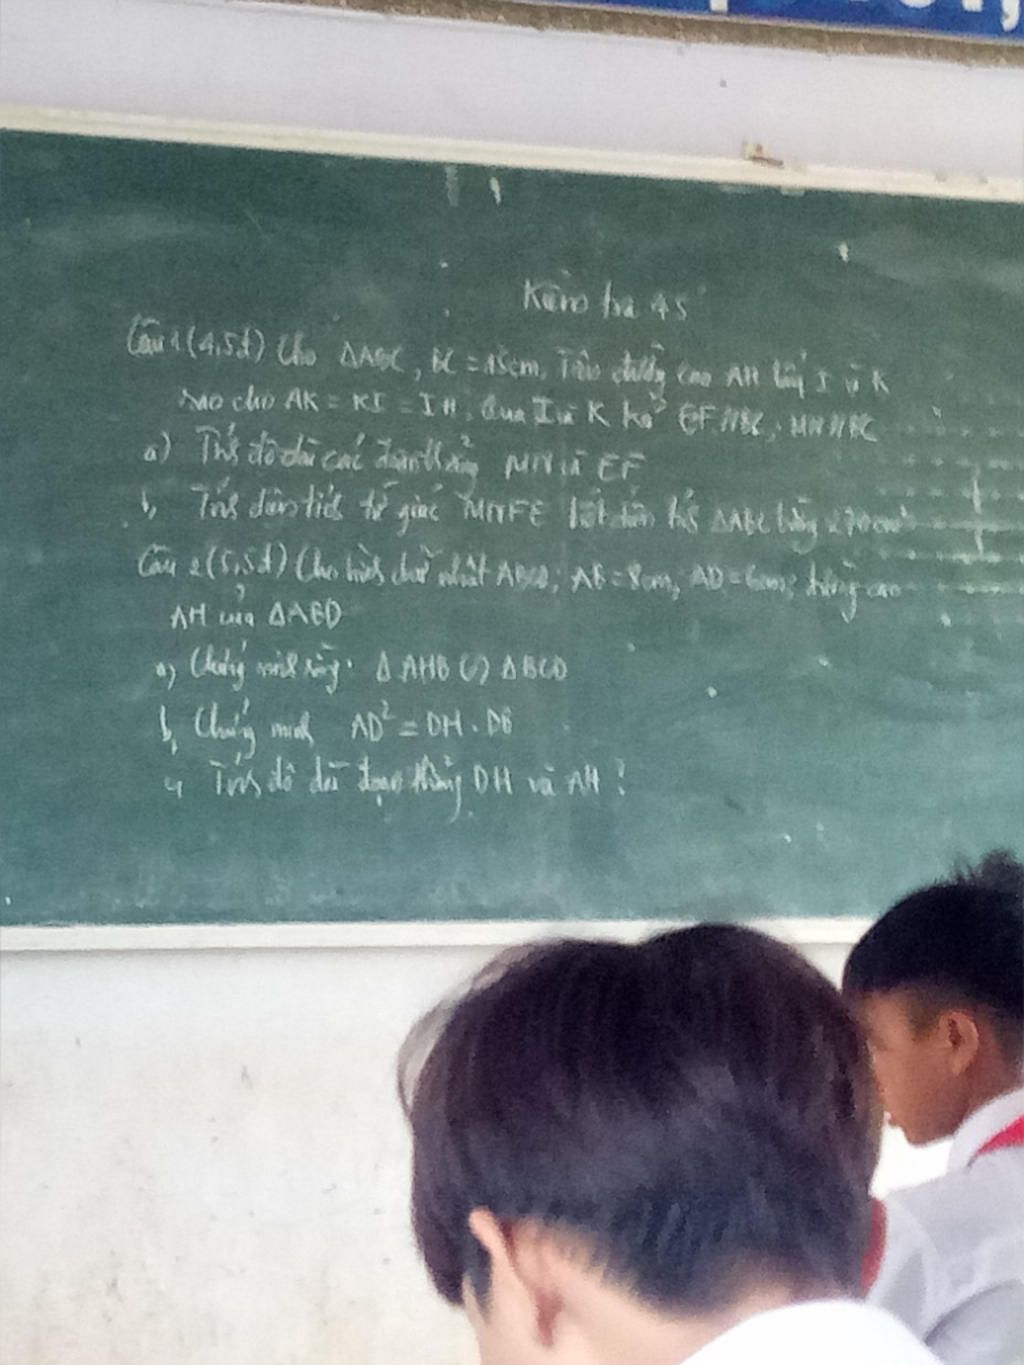 Kiểm tra 45'
Câu 1 (4,5đ) Cho ΔABC, BC = 15cm, Trên đường cao AH lấy I và K
sao cho AK = KI = IH, Qua I và K kẻ EF//BC, MN//BC
a) Tính độ dài các đoạn thẳng MN và EF
b, Tính diện tích tứ giác MNFE biết diện tích ΔABC bằng 270cm²
Câu 2 (5,5đ) Cho hình chữ nhật ABCD, AB = 8cm, AD = 6cm, đường cao
AH của ΔABD
a, Chứng minh rằng: ΔAHB ∽ ΔBCD
b, Chứng minh AD² = DH . DB
c, Tính độ dài đoạn thẳng DH và AH ?